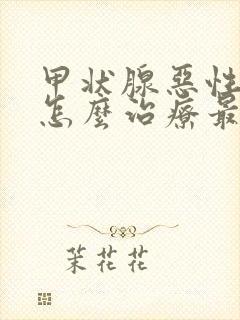 甲状腺惡性
怎麼治療最
茉花花